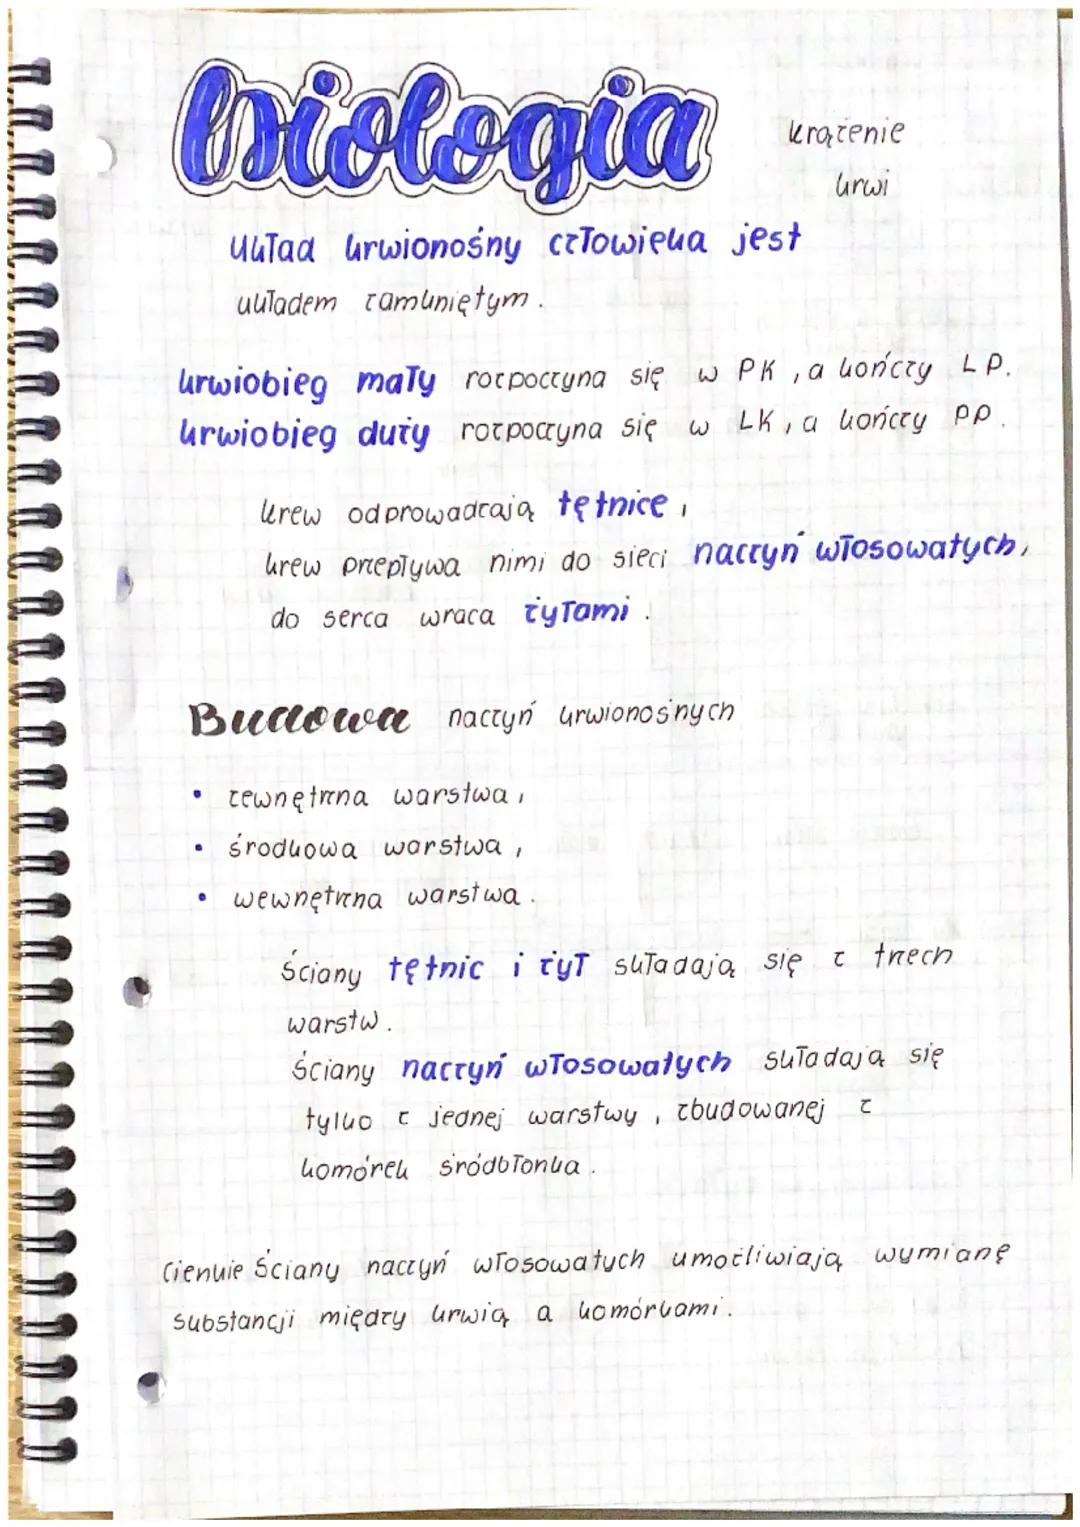 biologia
krążenie
krwi
układ krwionośny człowieka jest
układem zamkniętym.
krwiobieg mały rozpoczyna się w PK, a kończy LP.
krwiobieg duży rozpoczyna się w LK, a kończy PP.
krew odprowadzają tętnice,
krew przepływa nimi do sieci naczyń włosowatych,
do serca wraca żyłami.
Budowa naczyń krwionośnych
• zewnętrzna warstwa,
• środkowa warstwa,
• wewnętrzna warstwa.
Ściany tętnic i żył składają się z trzech
warstw.
Ściany naczyń włosowatych składają się
tylko z jednej warstwy, zbudowanej z
komórek śródbłonka.
Cienkie Ściany naczyń włosowatych umożliwiają wymianę
substancji między krwią a komórkami.